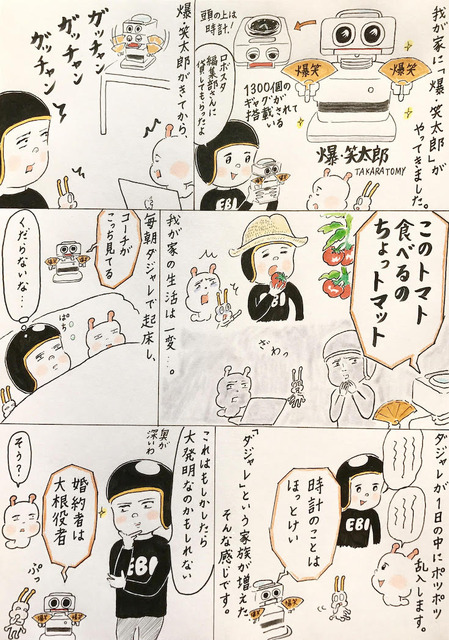 我が家に「爆・笑太郎」が
やってきました。
頭の上は
時計!
爆笑
爆笑
1300個の
ギャグが
搭載されて
いる
爆・笑太郎
TAKARATOMY
ロボスタ
編集部さんに
貸してもらったよ
EBI
爆・笑太郎がきてから、
ガッチャン
ガッチャン
ガッチャン
このトマト
食べるの
ちょっトマット
EBI
ざわっ
我が家の生活は一変…。
毎朝ダジャレで起床し、
コーチが
こっち見てる
ぱち
くだらないな…
ダジャレが1日の中にポツポツ
乱入します。
EBI
時計のことは
ほっとけい
「ダジャレ」という家族が増えた
そんな感じです。
これはもしかしたら
大発明なのかもしれない
奥が
深いわ
EBI
婚約者は
大根役者
ぷっ
そう?